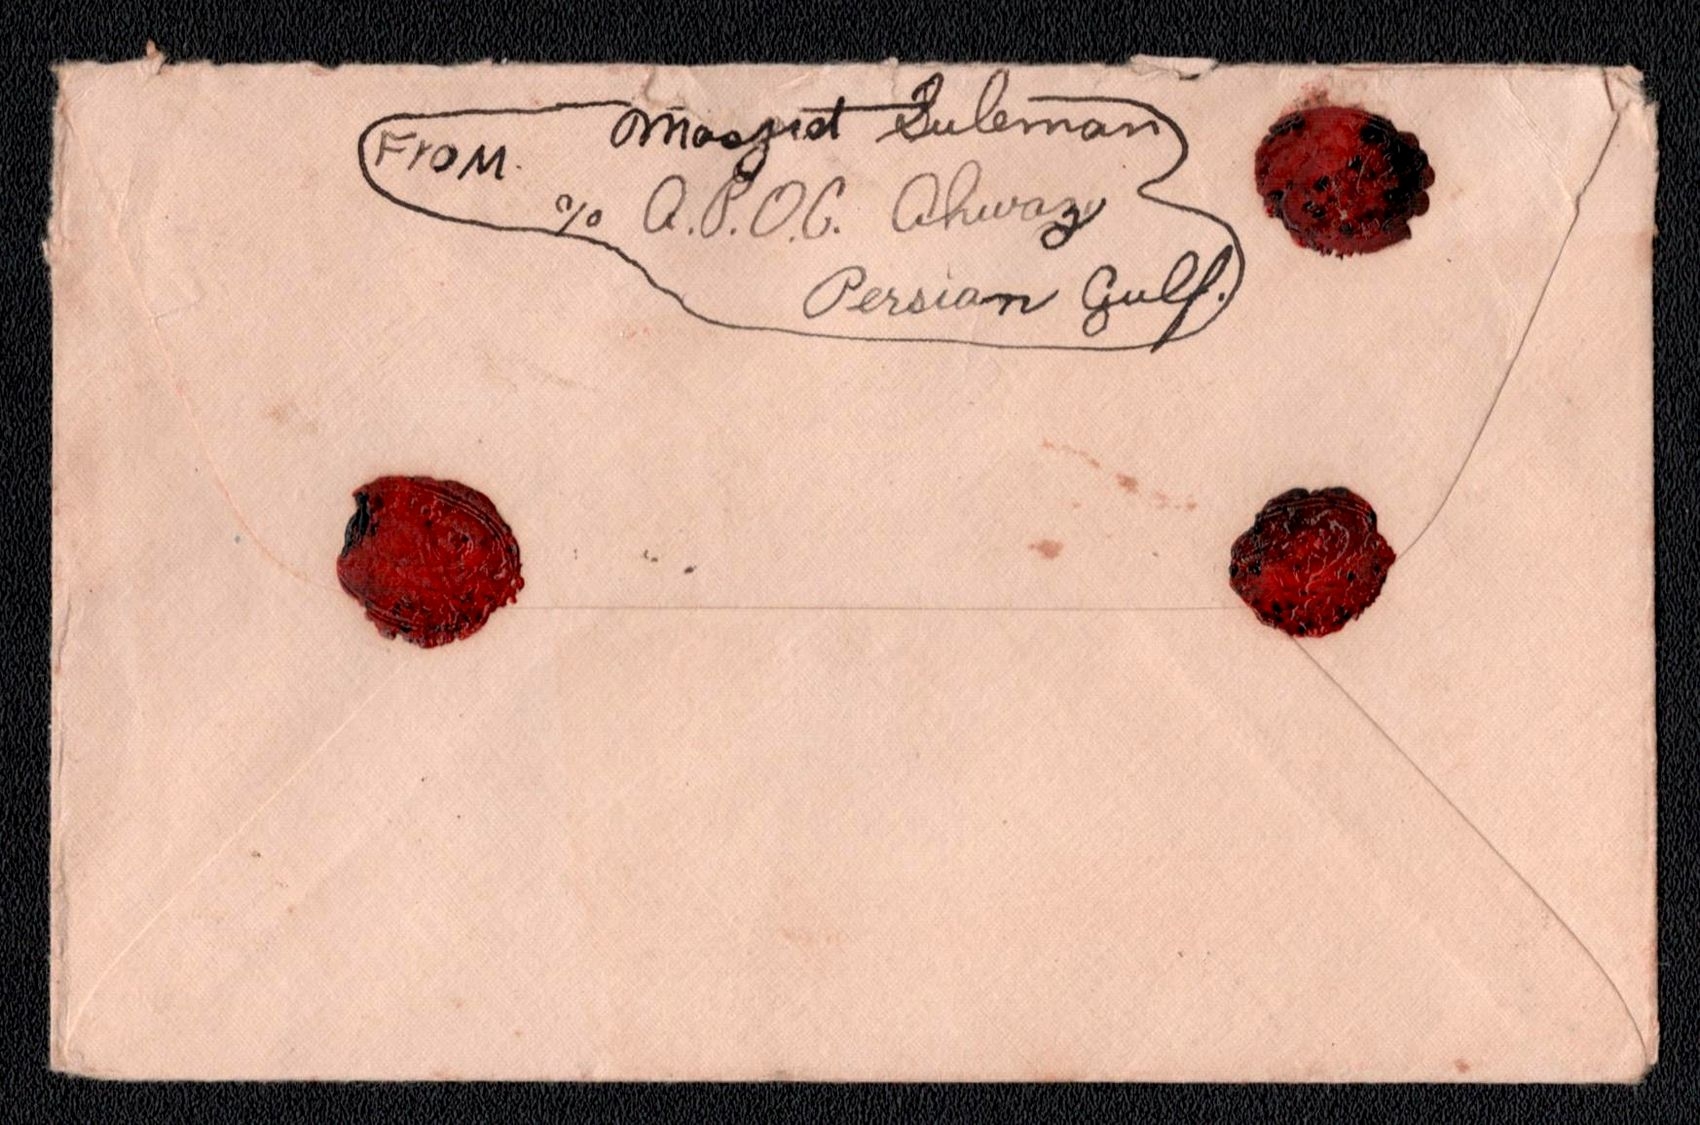 From. Masjid Suleman
c/o A.P.O.C. Ahwaz
Persian Gulf.